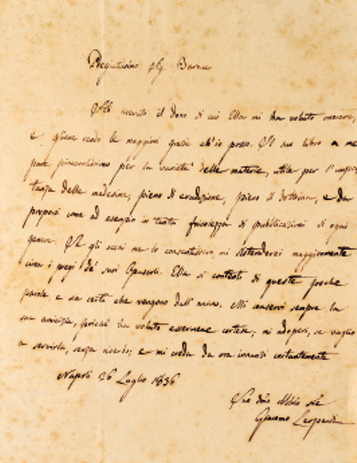 Pregiatissimo Sig. Barone
Ho ricevuto il dono di cui Ella mi ha voluto onorare,
e gliene rendo le maggiori grazie ch'io posso. Il suo libro a me
pare piacevolissimo per la varietà delle materie, utile per l'impor-
tanza delle medesime, pieno di erudizione, pieno di dottrina, e da
proporsi come ad esempio in tanta di pubblicazioni di ogni
genere. Se gli occhi me lo consentissero, mi distenderei maggiormente
circa i pregi de' suoi Opuscoli. Ella si contenti di queste poche
parole e sia certa che vengono dall'animo. Mi conservi sempre la
sua amicizia, poichè ha voluto essermene cortese; mi adoperi, se vaglio
a servirla, senza riserbo; e mi creda da ora innanzi costantemente
Napoli 26 Luglio 1836
Suo
Giacomo Leopardi